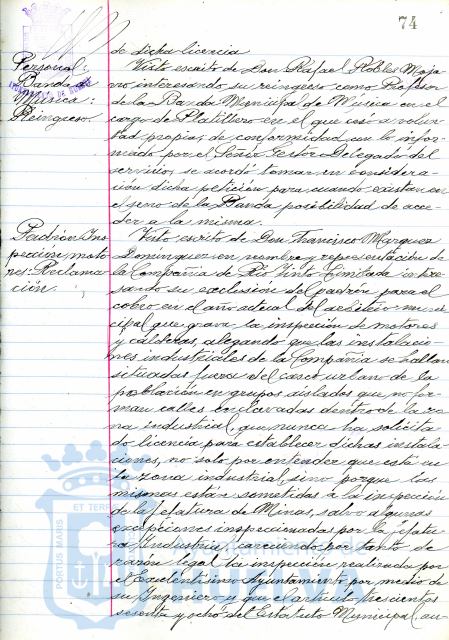 74
de dicha licencia
Personal:
Banda
Música:
Reingreso.
Visto escrito de Don Rafael Robles Moja
rro interesando su reingreso como Profesor
de la Banda Municipal de Musica en el
cargo de Platillero en el que cesó a volun
tad propia; de conformidad con lo infor-
mado por el Señor Gestor Delegado del
servicio, se acordó tomar en considera-
ción dicha petición para cuando exista en
el seno de la Banda posibilidad de acce-
der a la misma.
Padrón Ins
pección moto
res: Reclama
ción
Visto escrito de Don Francisco Marquez
Dominguez en nombre y representación de
la Compañia de Rio Tinto Limitada intere
sando su exclusión del padrón para el
cobro en el año actual del arbitrio muni
cipal que grava la inspección de motores
y calderas, alegando que las instalacio-
nes industriales de la Compañia se hallan
situadas fuera del casco urbano de la
población en grupos aislados que no for
man calles enclavadas dentro de la zo
na industrial, que nunca ha solicita
do licencia para establecer dichas instala
ciones, no solo por entender que está en
la zona industrial, sino porque las
mismas están sometidas a la inspección
de la Jefatura de Minas, salvo algunas
excepciones inspeccionadas por la Jefatu
ra Industria, careciendo por tanto de
razón legal la inspección realizada por
el Excelentísimo Ayuntamiento por medio de
su Ingeniero y que el artículo trescientos
sesenta y ocho del Estatuto Municipal, au
PORTUS MARIS
ET TERRAE